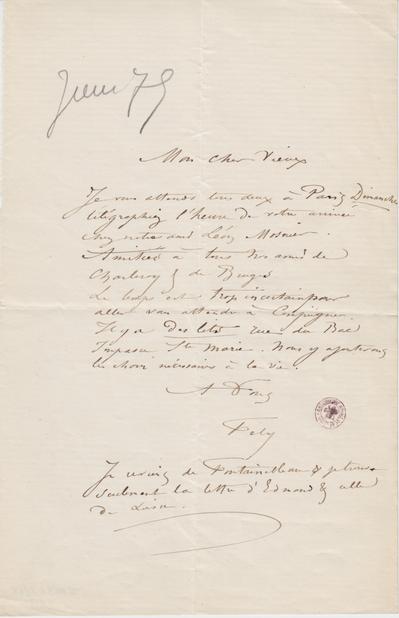 Juin 75
Mon cher Vieux
Je vous attends tous deux à Paris Dimanche
télégraphiez l'heure de votre arrivée
chez notre ami Léon
Amitiés à tous nos amis de
Charleroy & de Bruges
Le temps est trop incertain pour
aller vous attendre à Compiègne.
Il y a des lits rue du Bac
Impasse Ste Marie. Nous y ajouterons
les choses nécessaires à la vie.
A Vous
Fely
Je reviens de Fontainebleau & je trouve
seulement la lettre d'Edmond & celle
de